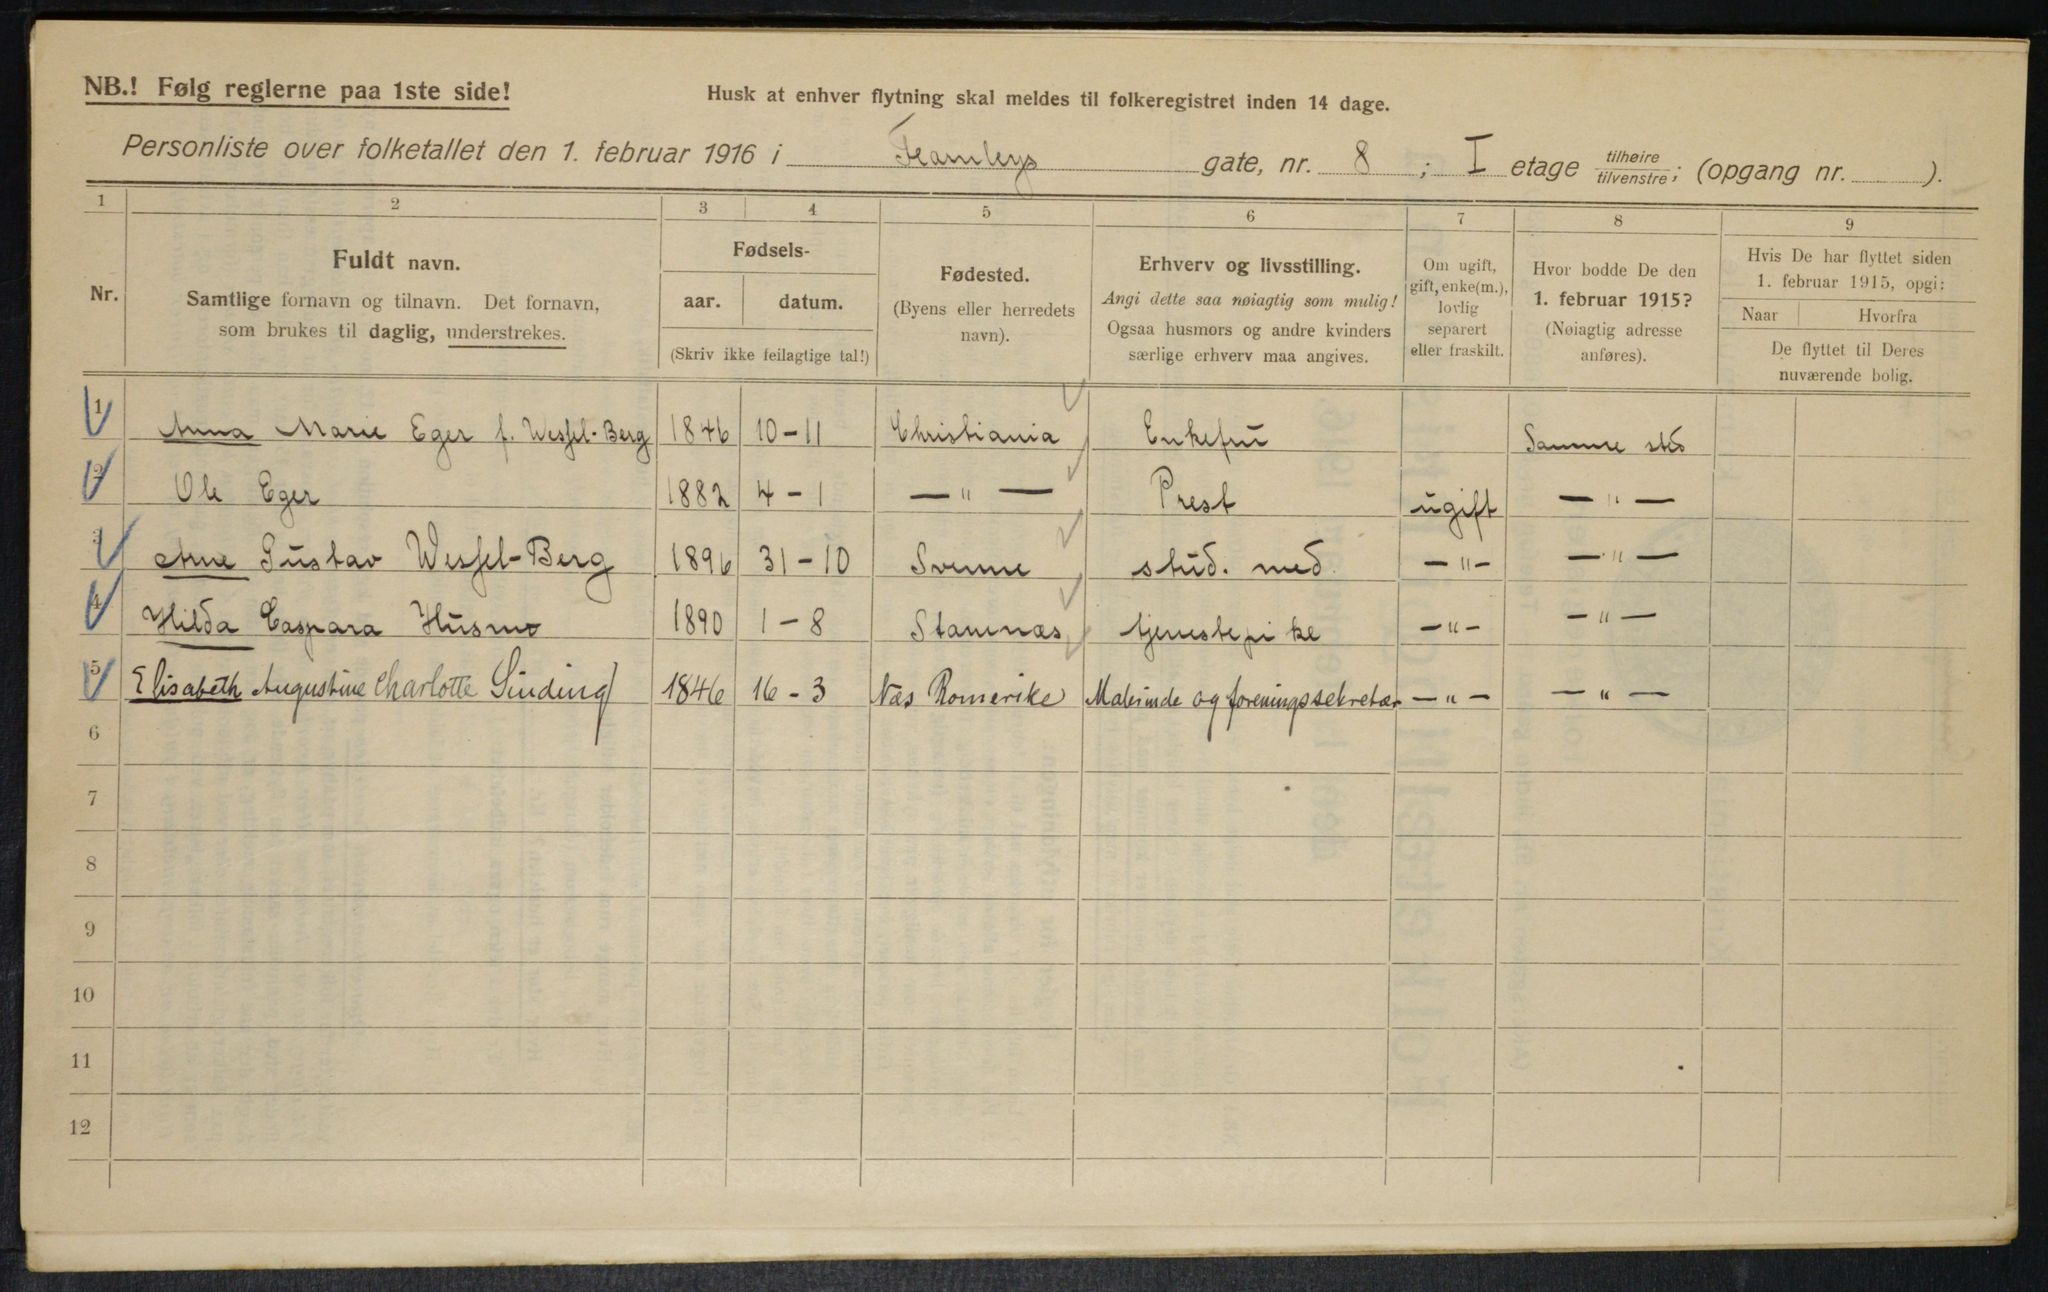 NB.! Følg reglerne paa 1ste side!
Husk at enhver flytning skal meldes til folkeregistret inden 14 dage.
Personliste over folketallet den 1. februar 1916 i Fearnleys gate, nr. 8 ; I etage tilhøire tilvenstre; (opgang nr. ).
1 2 3 4 5 6 7 8 9
Nr.
Fuldt navn.
Samtlige fornavn og tilnavn. Det fornavn,
som brukes til daglig, understrekes.
Fødsels-
aar. datum.
(Skriv ikke feilagtige tal!)
Fødested.
(Byens eller herredets
navn).
Erhverv og livsstilling.
Angi dette saa nøiagtig som mulig!
Ogsaa husmors og andre kvinders
særlige erhverv maa angives.
Om ugift,
gift, enke(m.),
lovlig
separert
eller fraskilt.
Hvor bodde De den
1. februar 1915?
(Nøiagtig adresse
anføres).
Hvis De har flyttet siden
1. februar 1915, opgi:
Naar Hvorfra
De flyttet til Deres
nuværende bolig.
1 Anna Marie Eger f. Wessel-Berg 1846 10-11 Christiania Enkefru Samme sted
2 Ole Eger 1882 4-1 — " — Prest ugift — " —
3 Arne Gustav Wessel-Berg 1896 31-10 Svenne stud. med. — " — — " —
4 Hilda Caspara Husmo 1890 1-8 Stamnæs tjenestepike — " — — " —
5 Elisabeth Augustine Charlotte Sinding 1846 16-3 Næs Romerike Malerinde og foreningssekretær — " — — " —
6
7
8
9
10
11
12